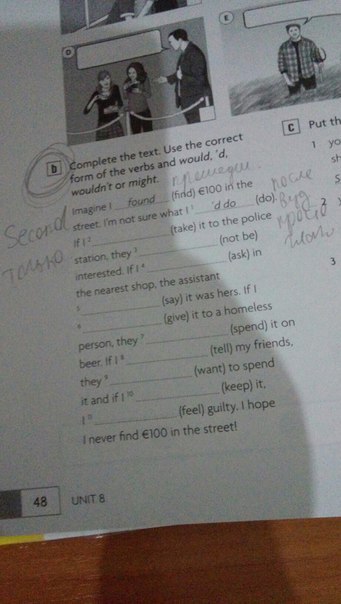 D
E
b Complete the text. Use the correct
form of the verbs and would, 'd,
wouldn't or might.
Imagine I found (find) €100 in the
street. I'm not sure what I ¹ 'd do (do).
If I ² (take) it to the police
station, they ³ (not be)
interested. If I ⁴ (ask) in
the nearest shop, the assistant
⁵ (say) it was hers. If I
⁶ (give) it to a homeless
person, they ⁷ (spend) it on
beer. If I ⁸ (tell) my friends,
they ⁹ (want) to spend
it and if I ¹⁰ (keep) it,
I ¹¹ (feel) guilty. I hope
I never find €100 in the street!
Second
только
после
c Put th
1 yo
sh
S
2 y
3
48 UNIT 8